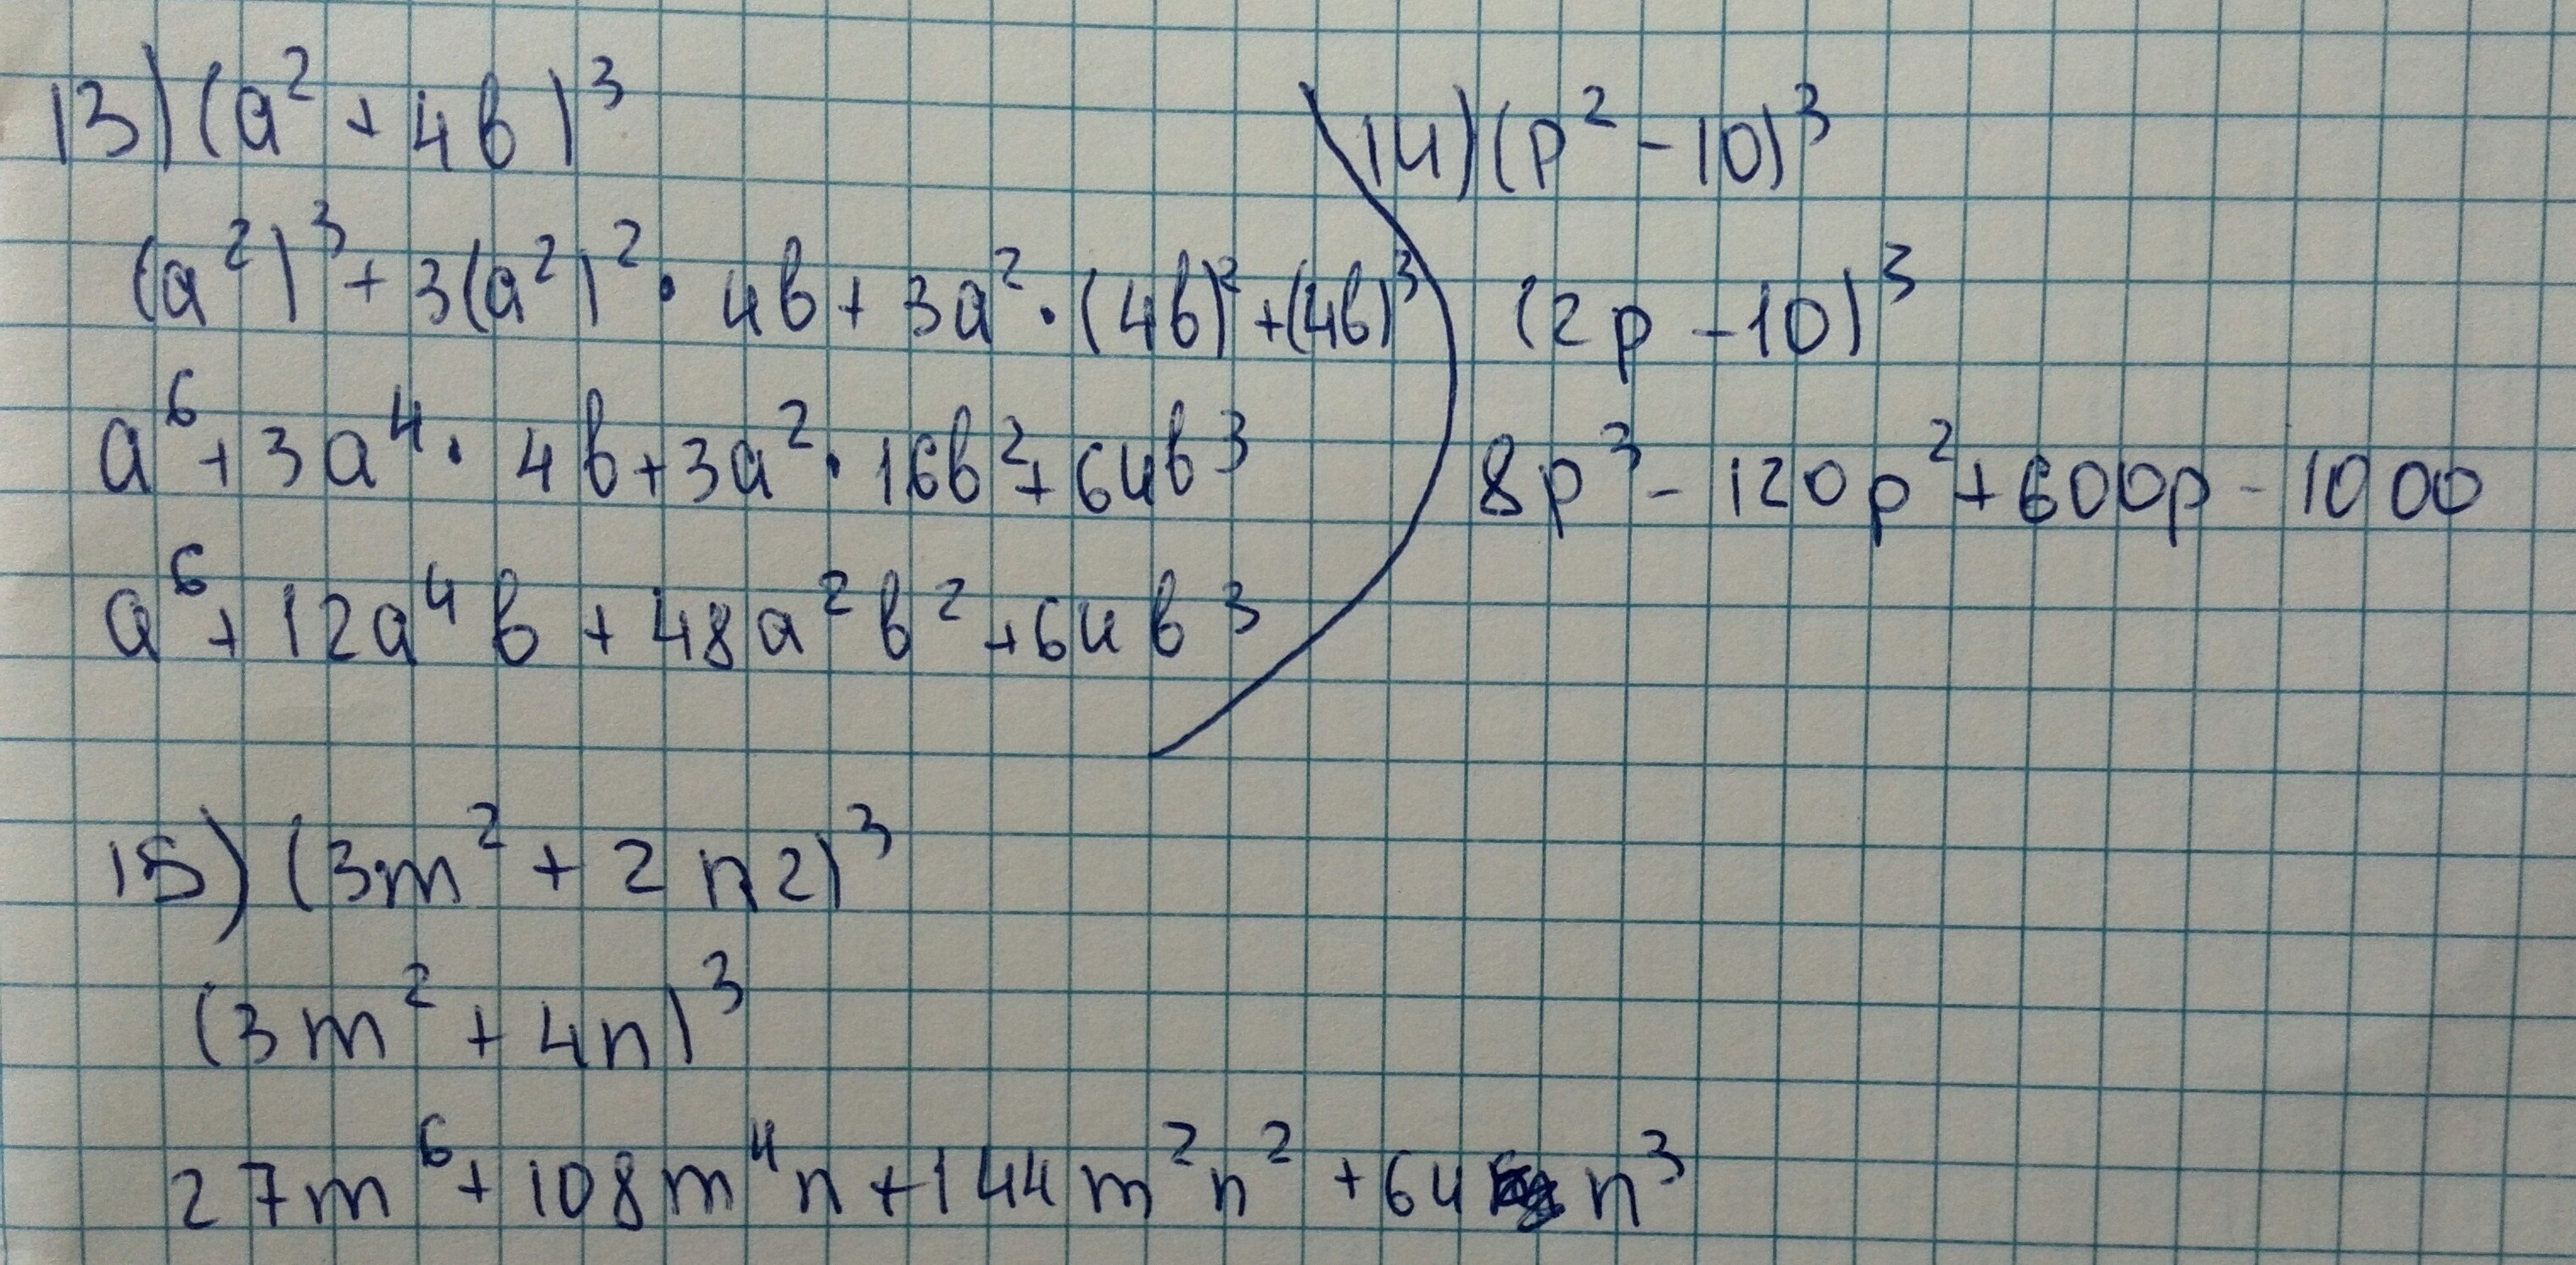 13) (a² + 4b)³
(a²)³ + 3(a²)² · 4b + 3a² · (4b)² + (4b)³
a⁶ + 3a⁴ · 4b + 3a² · 16b² + 64b³
a⁶ + 12a⁴b + 48a²b² + 64b³
14) (p² - 10)³
(2p - 10)³
8p³ - 120p² + 600p - 1000
15) (3m² + 2n2)³
(3m² + 4n)³
27m⁶ + 108m⁴n + 144m²n² + 64n³